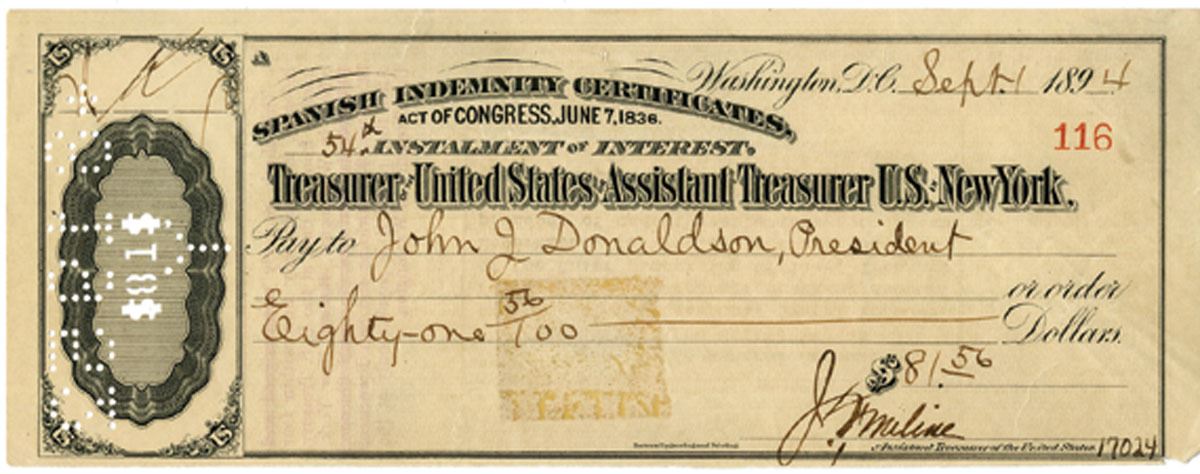 Washington, D.C. Sept. 1 1894
SPANISH INDEMNITY CERTIFICATES.
ACT OF CONGRESS, JUNE 7, 1836.
116
54th INSTALMENT OF INTEREST.
Treasurer United States Assistant Treasurer U.S. New York.
Pay to John J Donaldson, President
or order
Eighty-one 56/100 Dollars.
$81$
$81.56
Assistant Treasurer of the United States.
17024